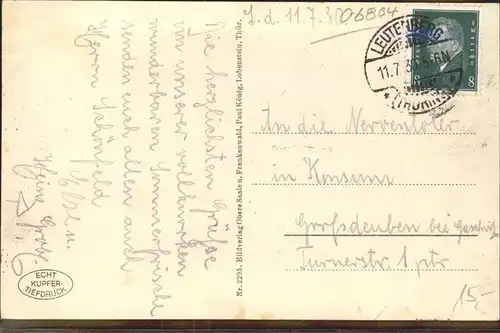 Die herzlichsten Grüße
von unserer
wunderbaren Sommerfrische
senden euch allen auch
Herrn Schönfeld
Else u.
Heinz
ECHT
KUPFER-
TIEFDRUCK
Nr. 2295. Bildverlag Obere Saale u. Frankenwald, Paul König, Lobenstein, Thür.
11.7.3
06804
LEUTENBERG
11.7.3
*(THÜRING)*
8
An die
in Konsum
Großdeuben bei
Turnerstr. 1 ptr
15,-